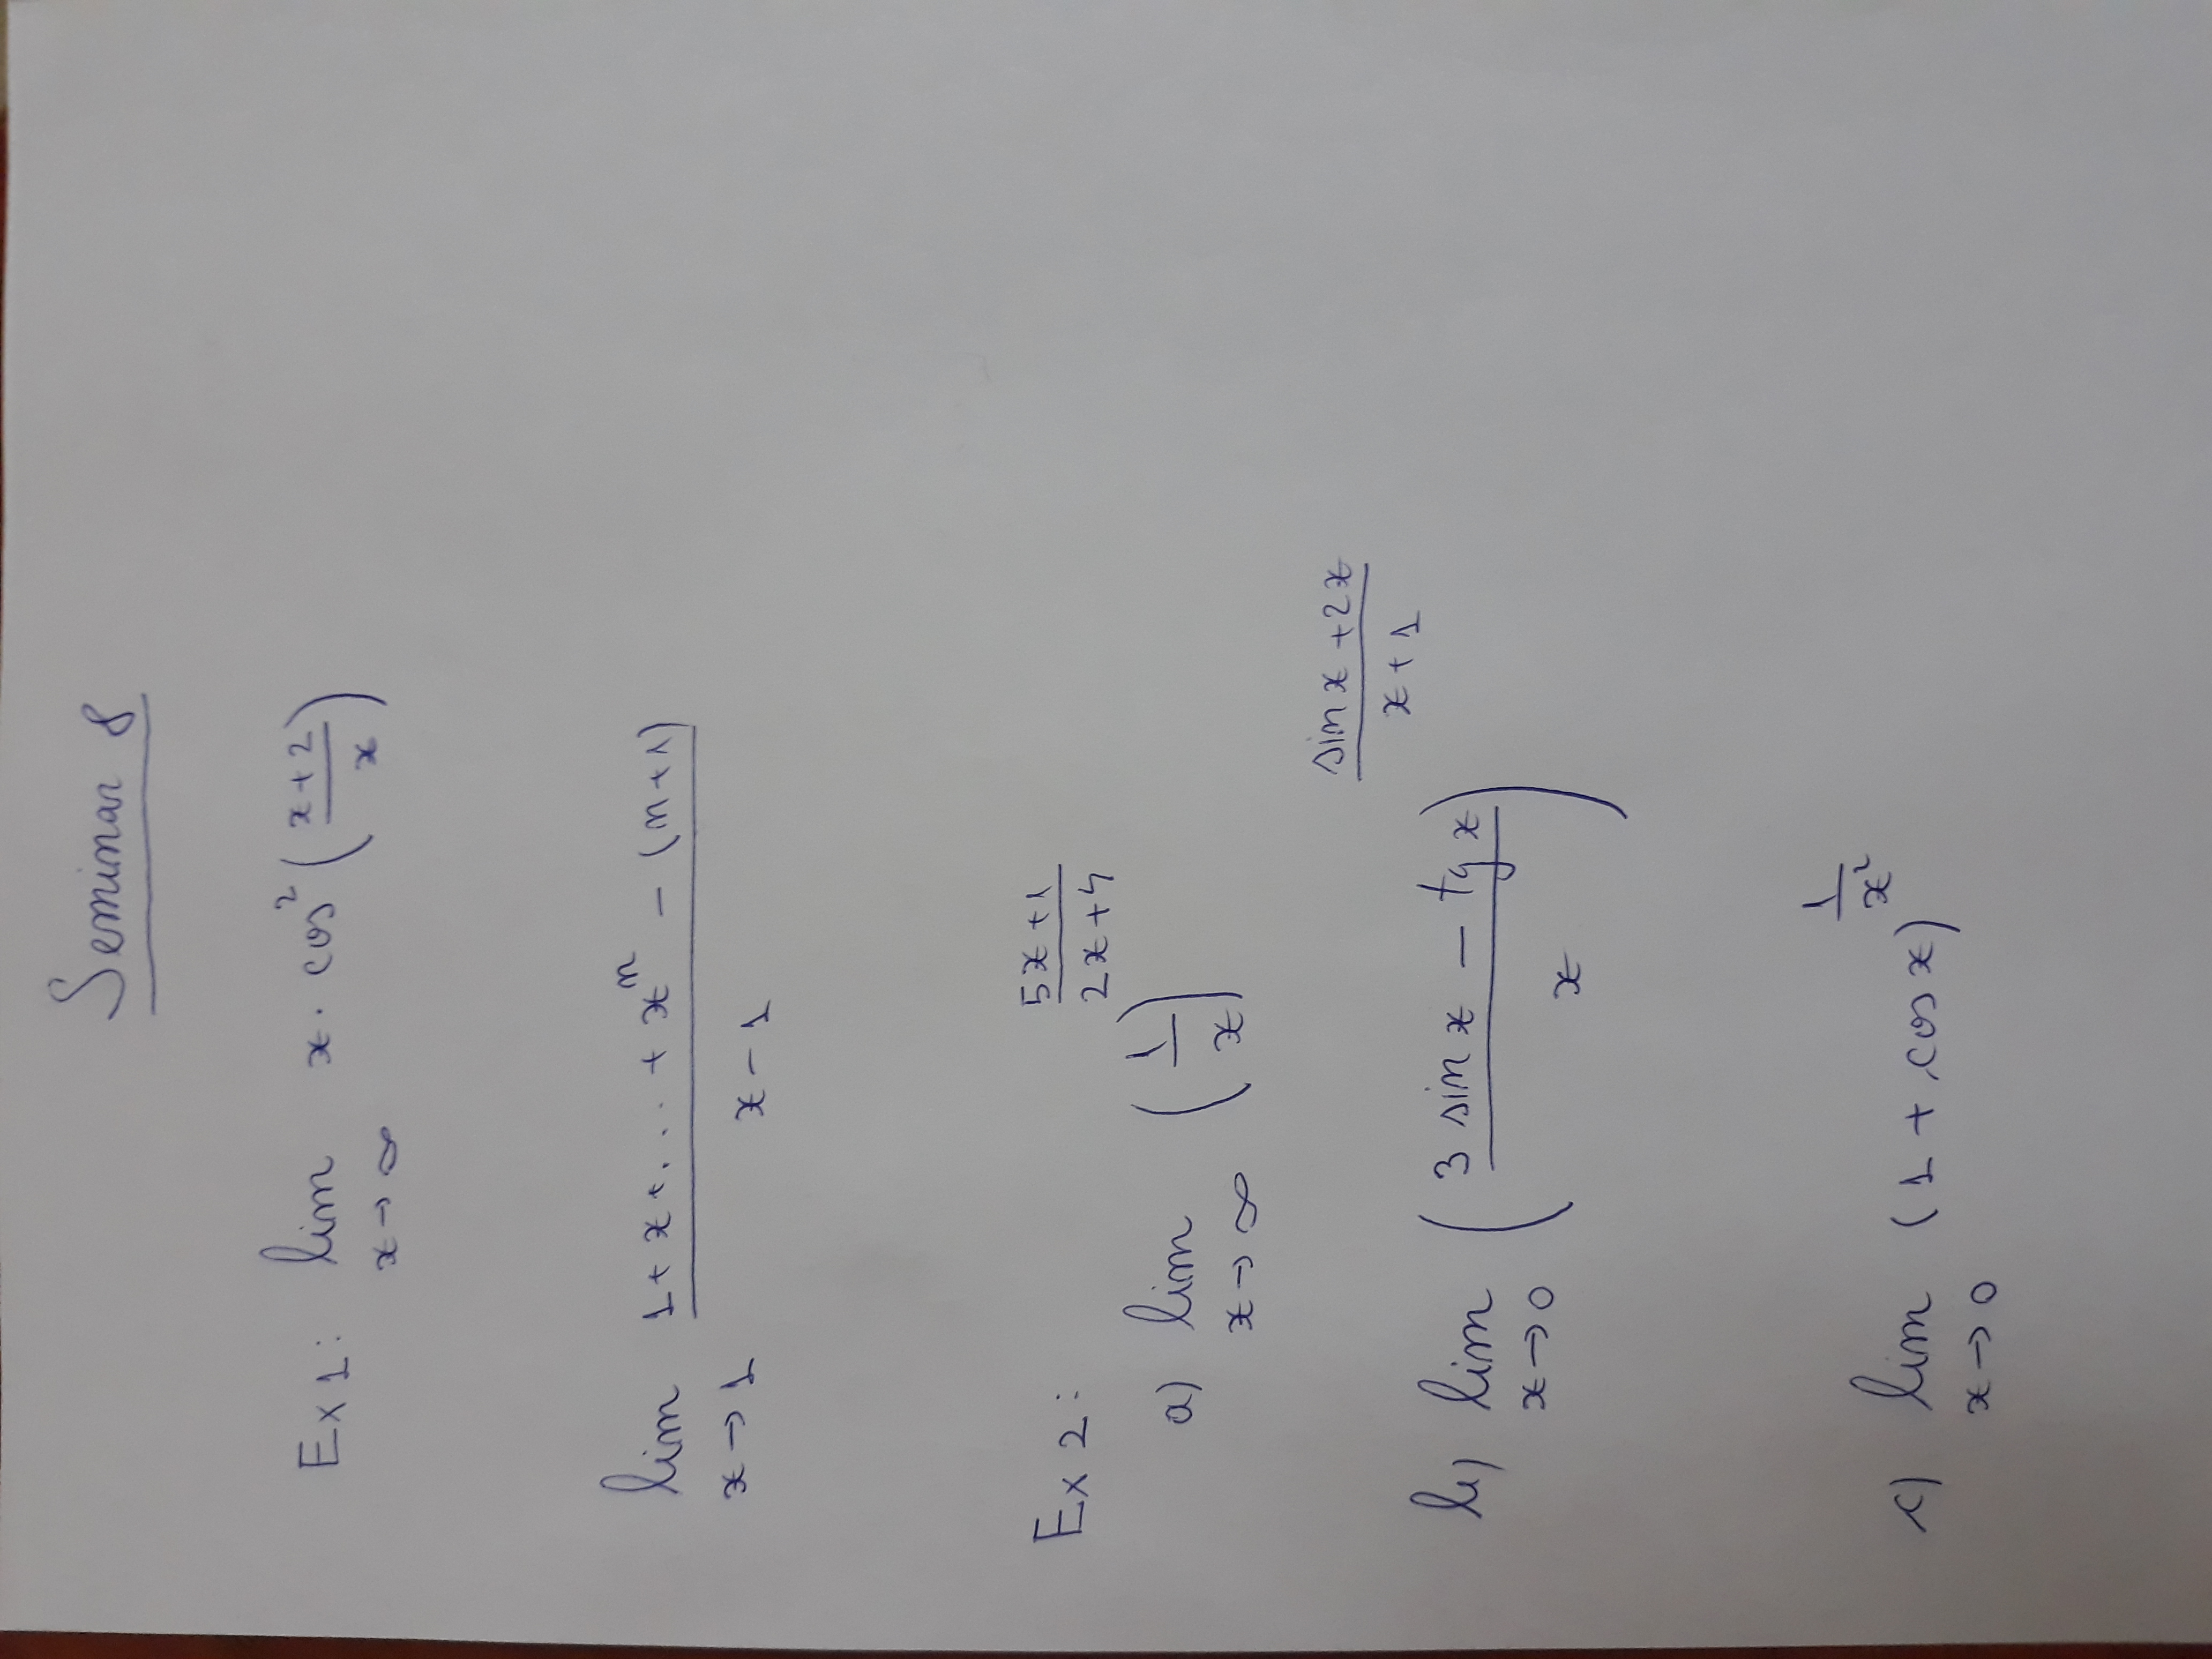 Seminar 8
Ex 1: lim x→∞ x · cos² ( (x+2)/x )
lim x→1 (1 + x + ... + xⁿ - (n+1)) / (x - 1)
Ex 2:
a) lim x→∞ (1/x)^((5x+1)/(2x+4))
b) lim x→0 ((3 sin x - tg x)/x)^((sin x + 2x)/(x+1))
c) lim x→0 (1 + cos x)^(1/x²)